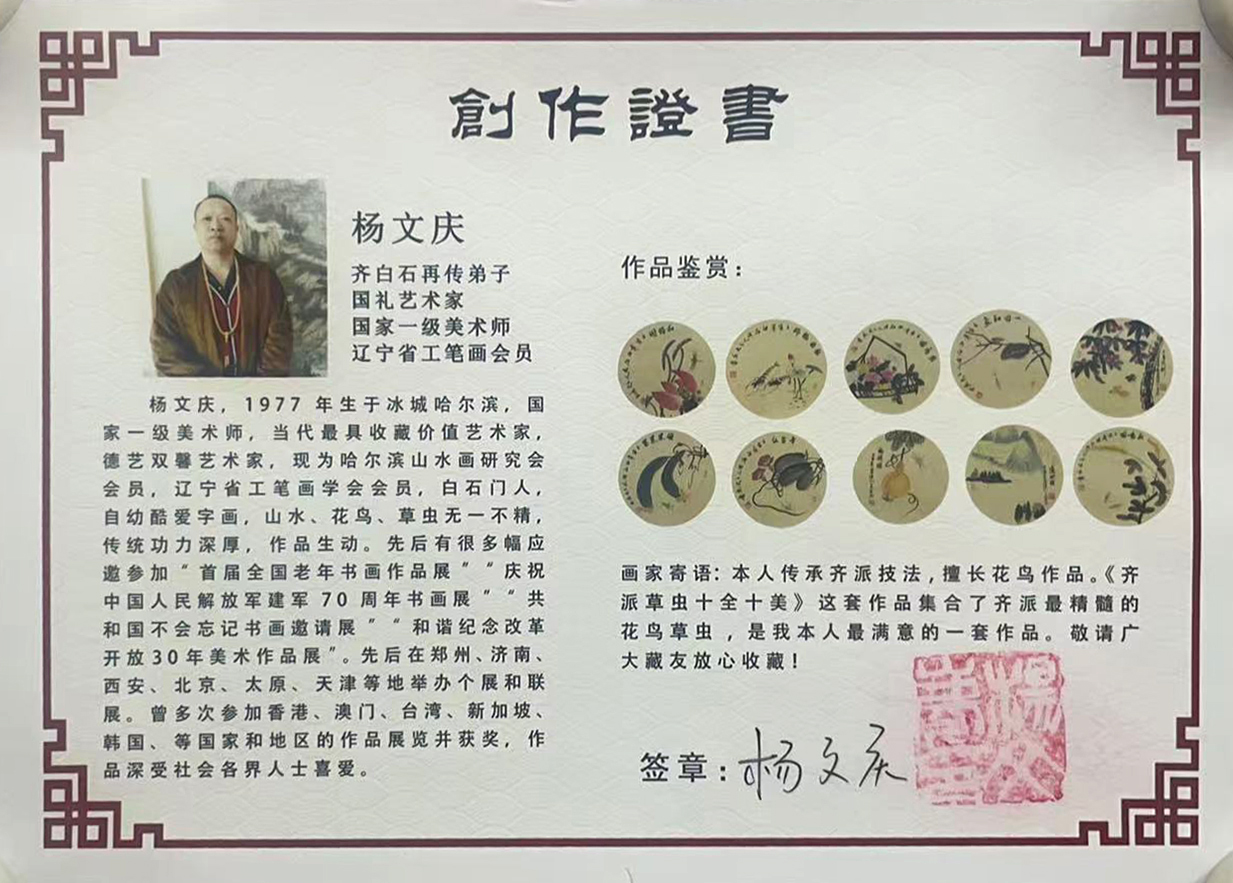 創作證書
杨文庆
齐白石再传弟子
国礼艺术家
国家一级美术师
辽宁省工笔画会员
杨文庆，1977 年生于冰城哈尔滨，国
家一级美术师，当代最具收藏价值艺术家，
德艺双馨艺术家，现为哈尔滨山水画研究会
会员，辽宁省工笔画学会会员，白石门人，
自幼酷爱字画，山水、花鸟、草虫无一不精，
传统功力深厚，作品生动。先后有很多幅应
邀参加“首届全国老年书画作品展”“庆祝
中国人民解放军建军 70 周年书画展”“共
和国不会忘记书画邀请展”“和谐纪念改革
开放30年美术作品展”。先后在郑州、济南、
西安、北京、太原、天津等地举办个展和联
展。曾多次参加香港、澳门、台湾、新加坡、
韩国、等国家和地区的作品展览并获奖，作
品深受社会各界人士喜爱。
作品鉴赏：
画家寄语：本人传承齐派技法,擅长花鸟作品。《齐
派草虫十全十美》这套作品集合了齐派最精髓的
花鸟草虫，是我本人最满意的一套作品。敬请广
大藏友放心收藏！
签章：杨文庆